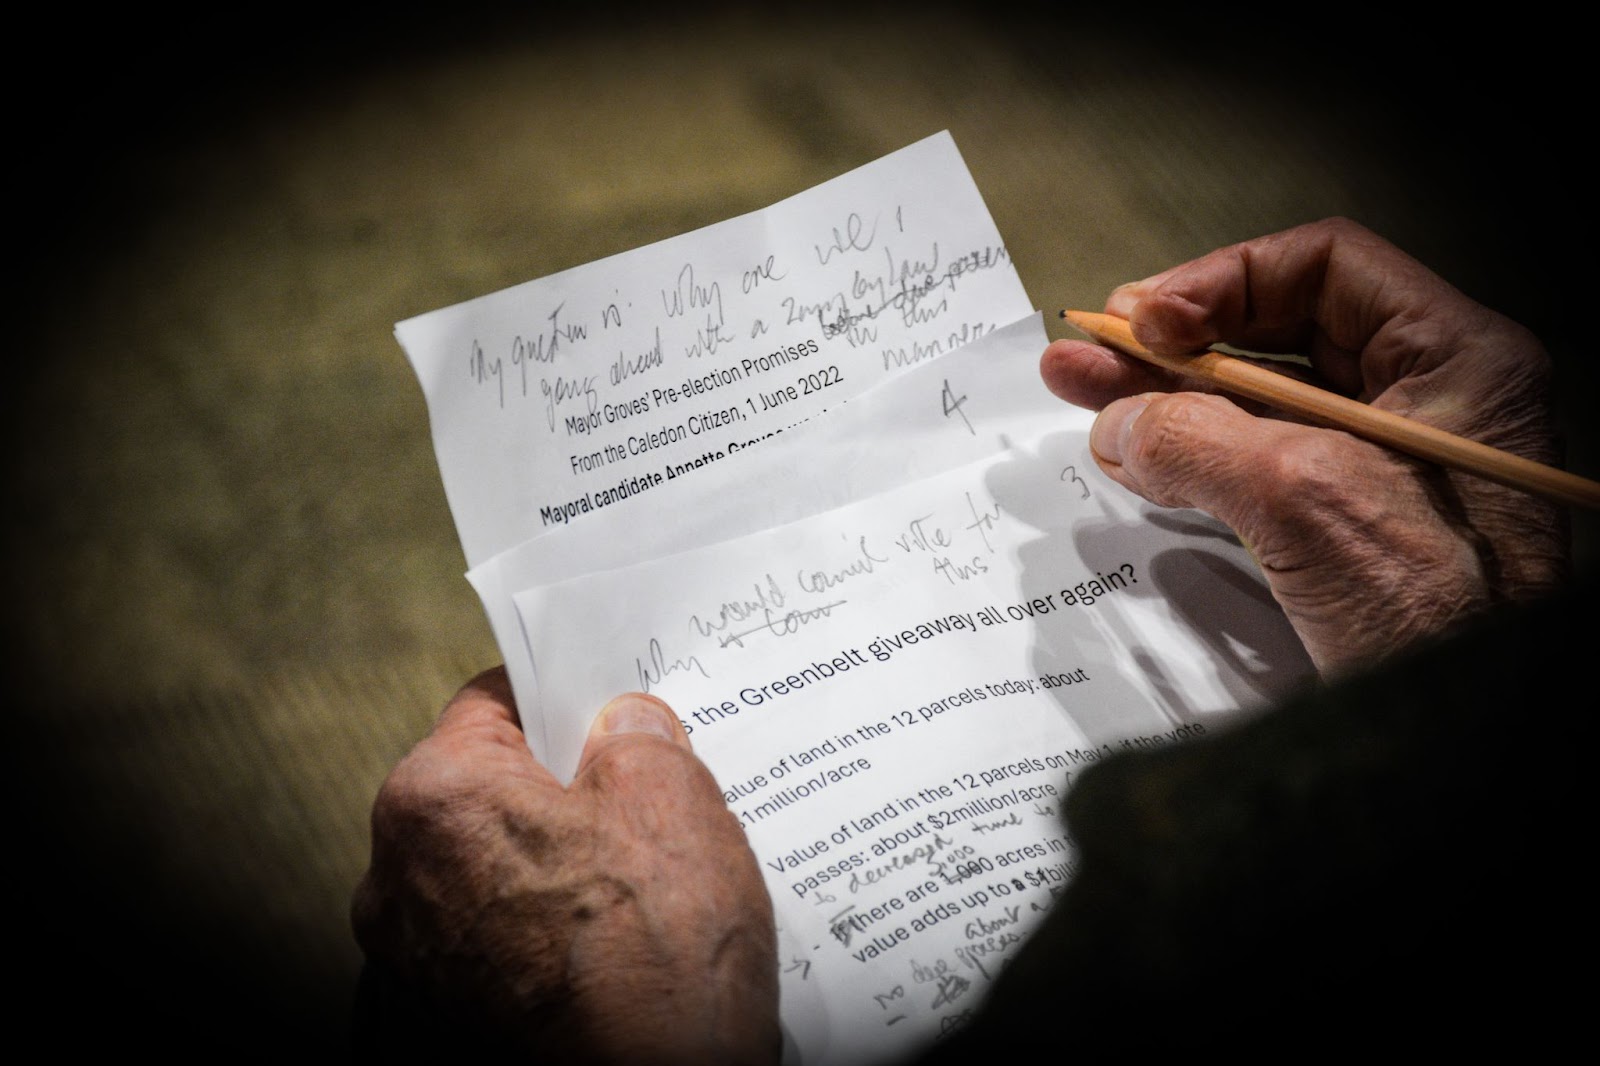 My question is: Why are we
going ahead with a zoning by law
in this
manner
Mayor Groves' Pre-election Promises
From the Caledon Citizen, 1 June 2022
Mayoral candidate Annette Groves
4
3
Why would council vote for
this
s the Greenbelt giveaway all over again?
alue of land in the 12 parcels today: about
$1million/acre
Value of land in the 12 parcels on May 1, if the vote
passes: about $2million/acre
to decreased time to
3,000
If there are 1,000 acres in
value adds up to a $1bill
about a
no due process